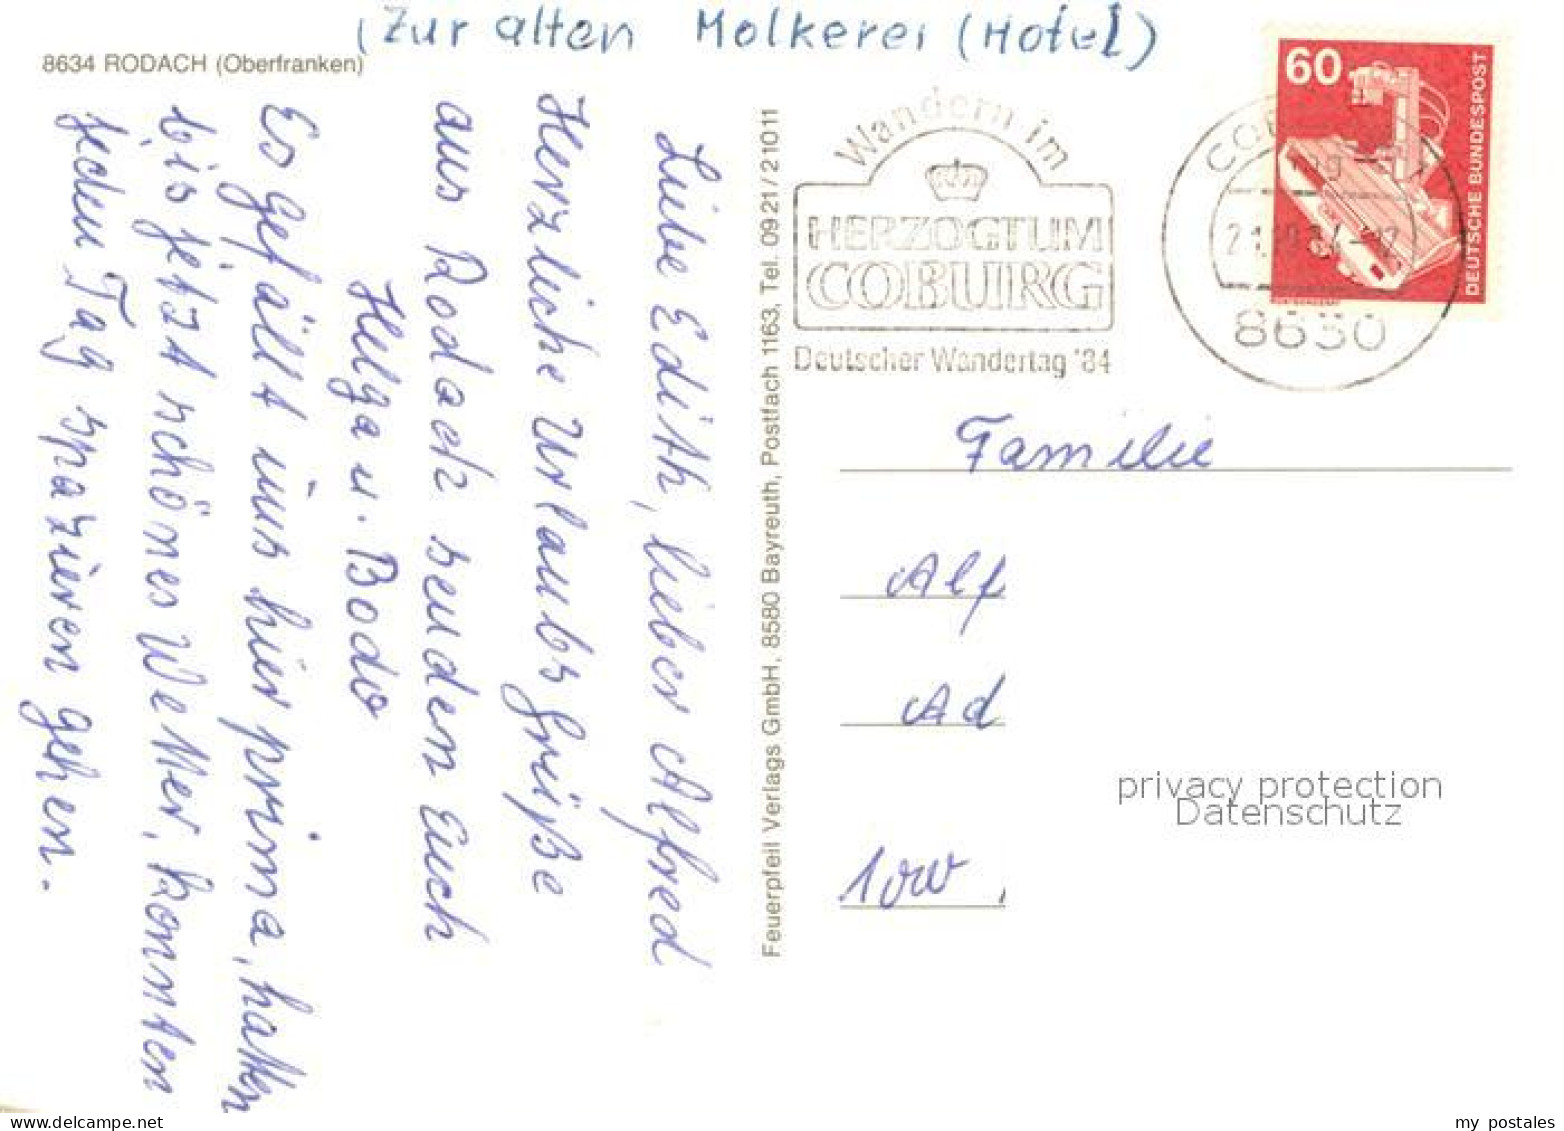 (Zur alten Molkerei (Hotel)
8634 RODACH (Oberfranken)
Liebe Edith, lieber Alfred
Herzliche Urlaubsgrüße
aus Rodach senden Euch
Helga u. Bodo
Es gefällt uns hier prima, hatten
bis jetzt schönes Wetter, konnten
jeden Tag spazieren gehen.
Feuerpfeil Verlags GmbH, 8580 Bayreuth, Postfach 1163, Tel. 0921/21011
Wandern im
HERZOGTUM
COBURG
Deutscher Wandertag '84
60
DEUTSCHE BUNDESPOST
8630
Familie
Alf
Ad
privacy protection
Datenschutz
delcampe.net
my_postales